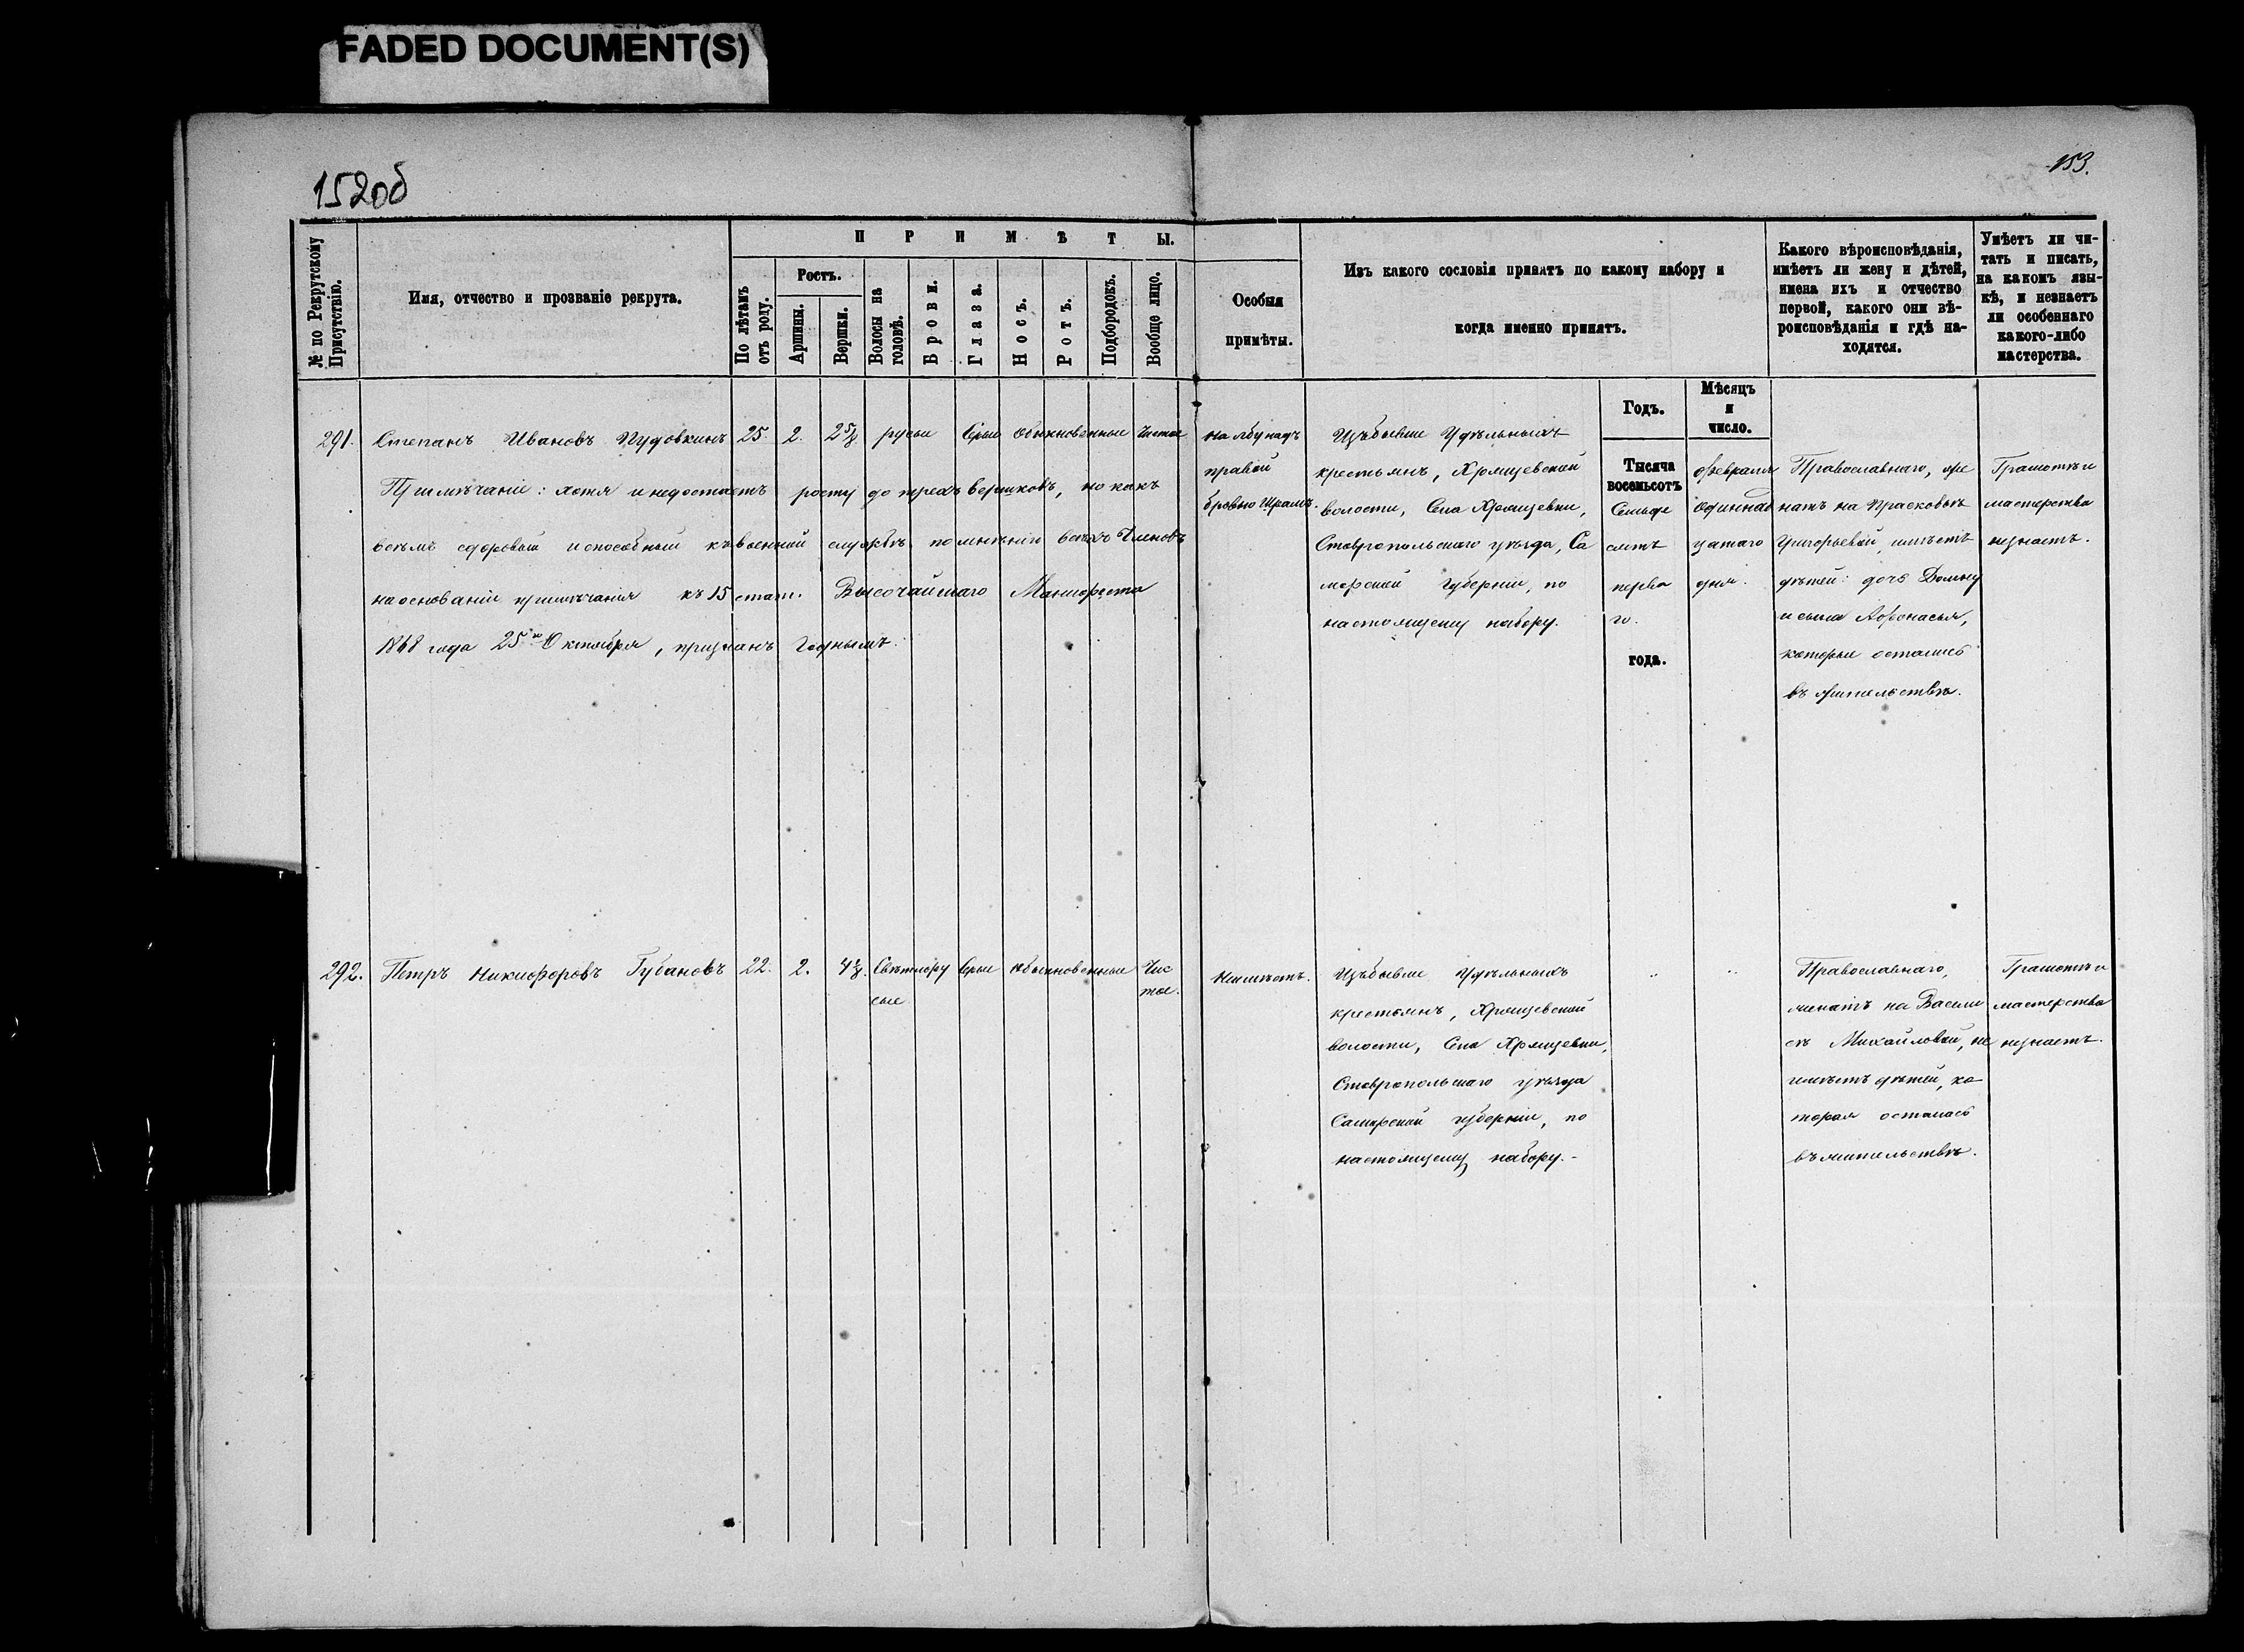 FADED DOCUMENT(S)
152об
153.
№ по Рекрутскому Присутствію.
Имя, отчество и прозваніе рекрута.
ПРИМѢТЫ.
По лѣтамъ отъ роду.
Ростъ.
Аршины.
Вершки.
Волосы на головѣ.
Брови.
Глаза.
Носъ.
Ротъ.
Подбородокъ.
Вообще лицо.
Особыя
примѣты.
Изъ какого сословія принятъ по какому набору и
когда именно принятъ.
Годъ.
Мѣсяцъ
и
число.
Какого вѣроисповѣданія,
имѣетъ ли жену и дѣтей,
имена ихъ и отчество
первой, какого они вѣ-
роисповѣданія и гдѣ на-
ходятся.
Умѣетъ ли чи-
тать и писать,
на какомъ язы-
кѣ, и незнаетъ
ли особеннаго
какого-либо
мастерства.
291. Степанъ Ивановъ Пудовкинъ 25. 2. 2 5/8 русые Серые Обыкновенные Чистое
Примѣчаніе: хотя и недостаетъ росту до трехъ вершковъ, но какъ
всѣмъ здоровый и способный къ военной службѣ по мнѣнію всѣхъ Членовъ
на основаніи примѣчанія къ 15 стат. Высочайшаго Манифеста
1868 года 25 Октября, признанъ годнымъ.
на лбу надъ
правой
бровью Шрамъ.
Изъ бывше Удѣльныхъ
крестьянъ, Хрящевской
волости, Села Хрящевки,
Ставропольскаго уѣзда, Са
марской Губерніи, по
настоящему набору.
Тысяча
восемьсотъ
Семьде
сятъ
перва
го.
года.
Февраля
одиннад
цатаго
дня.
Православнаго, же
натъ на Прасковьѣ
Григорьевой, имѣетъ
дѣтей: дочь Домну
и сына Афонасья,
которые остались
въ жительствѣ.
Грамотѣ и
мастерства
незнаетъ.
292. Петръ Никифоровъ Губановъ 22. 2. 4 1/8. Свѣтлору Серые Обыкновенные Чис
сые
тое.
Неимѣетъ.
Изъ бывше Удѣльныхъ
крестьянъ, Хрящевской
волости, Села Хрящевки,
Ставропольскаго уѣзда
Самарской губерніи, по
настоящему набору.-
„ „
Православнаго,
женатъ на Васили
сѣ Михайловой, не
имѣетъ дѣтей, ко
торая осталась
въ жительствѣ.
Грамотѣ и
мастерства
незнаетъ.